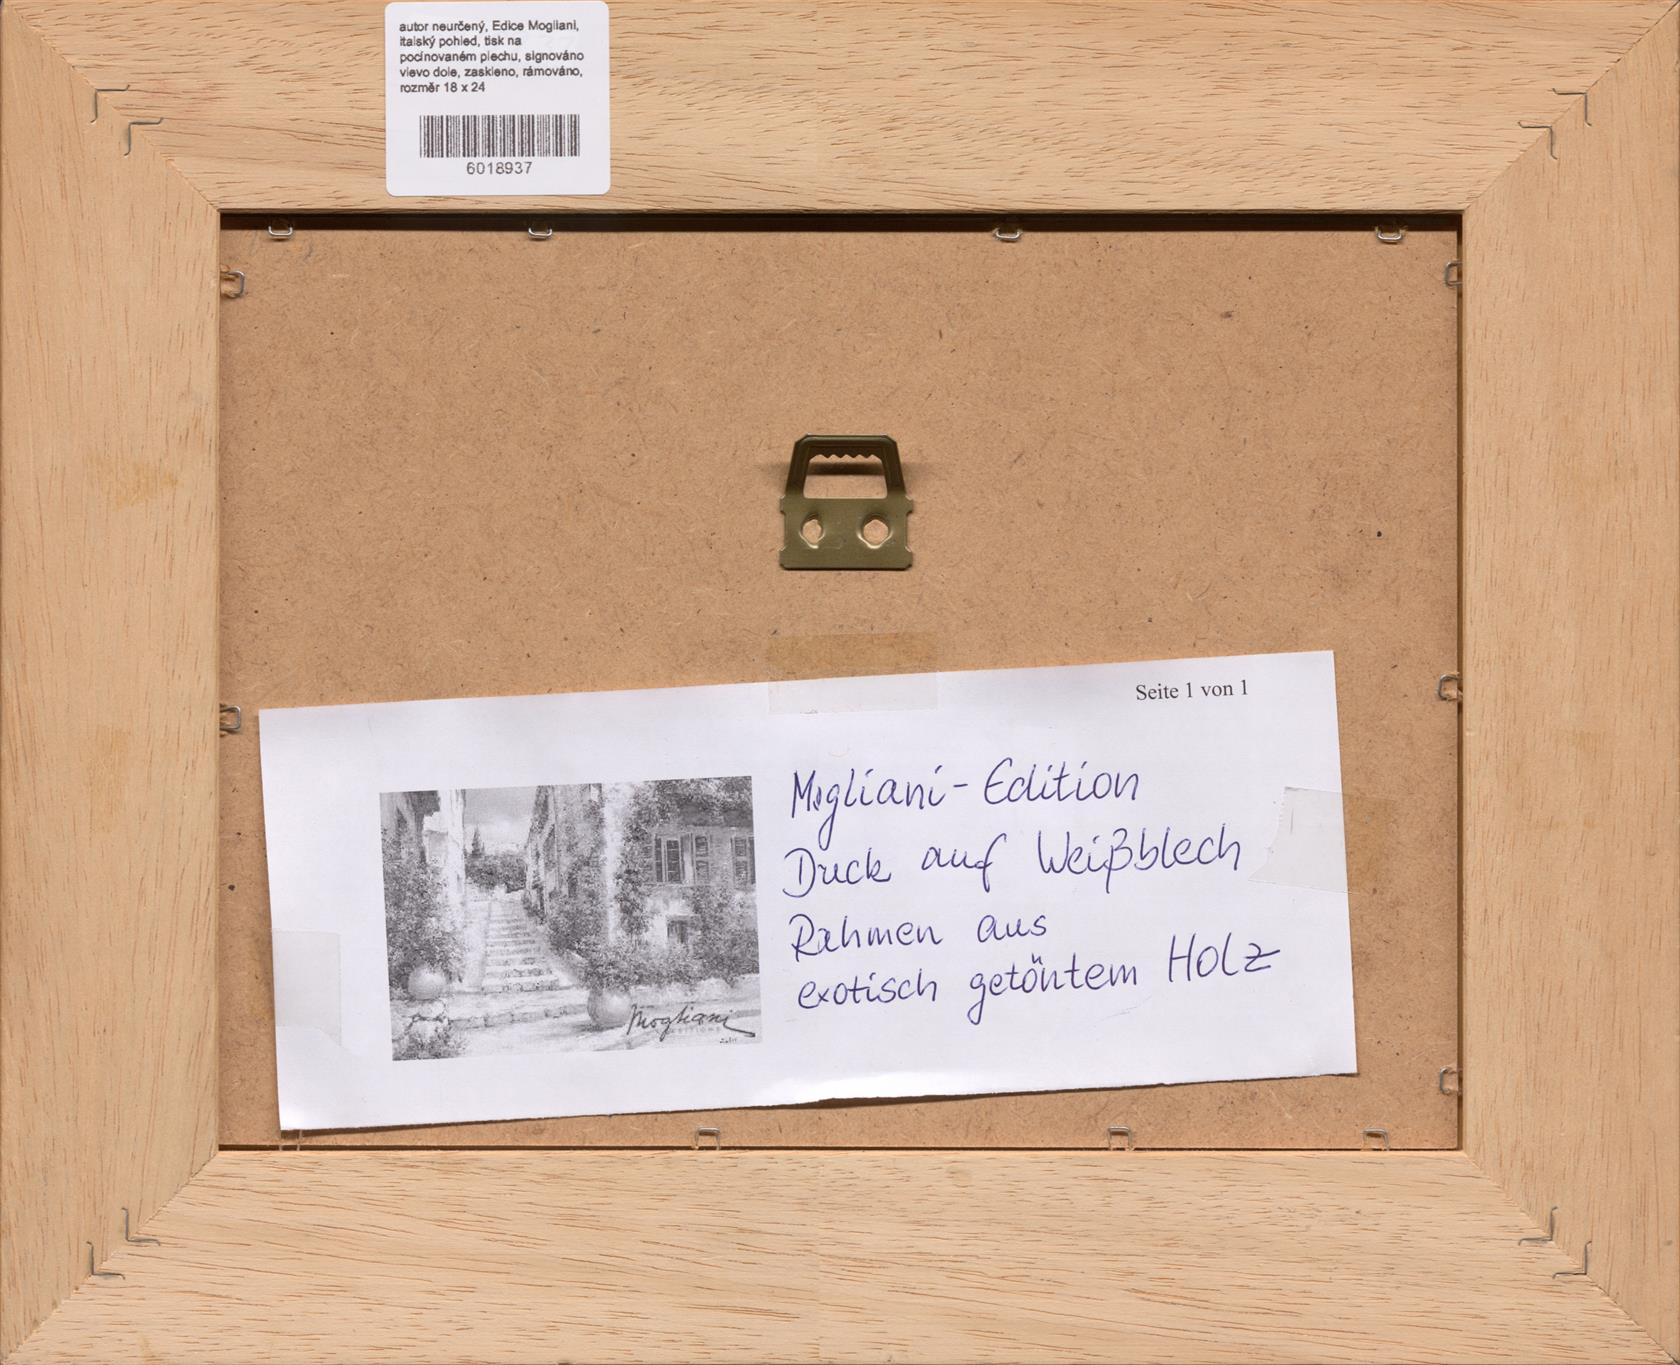 autor neurčený, Edice Mogliani,
italský pohled, tisk na
pocínovaném plechu, signováno
vlevo dole, zaskleno, rámováno,
rozměr 18 x 24
6018937
Seite 1 von 1
Mogliani-Edition
Druck auf Weißblech
Rahmen aus
exotisch getöntem Holz
Mogliani